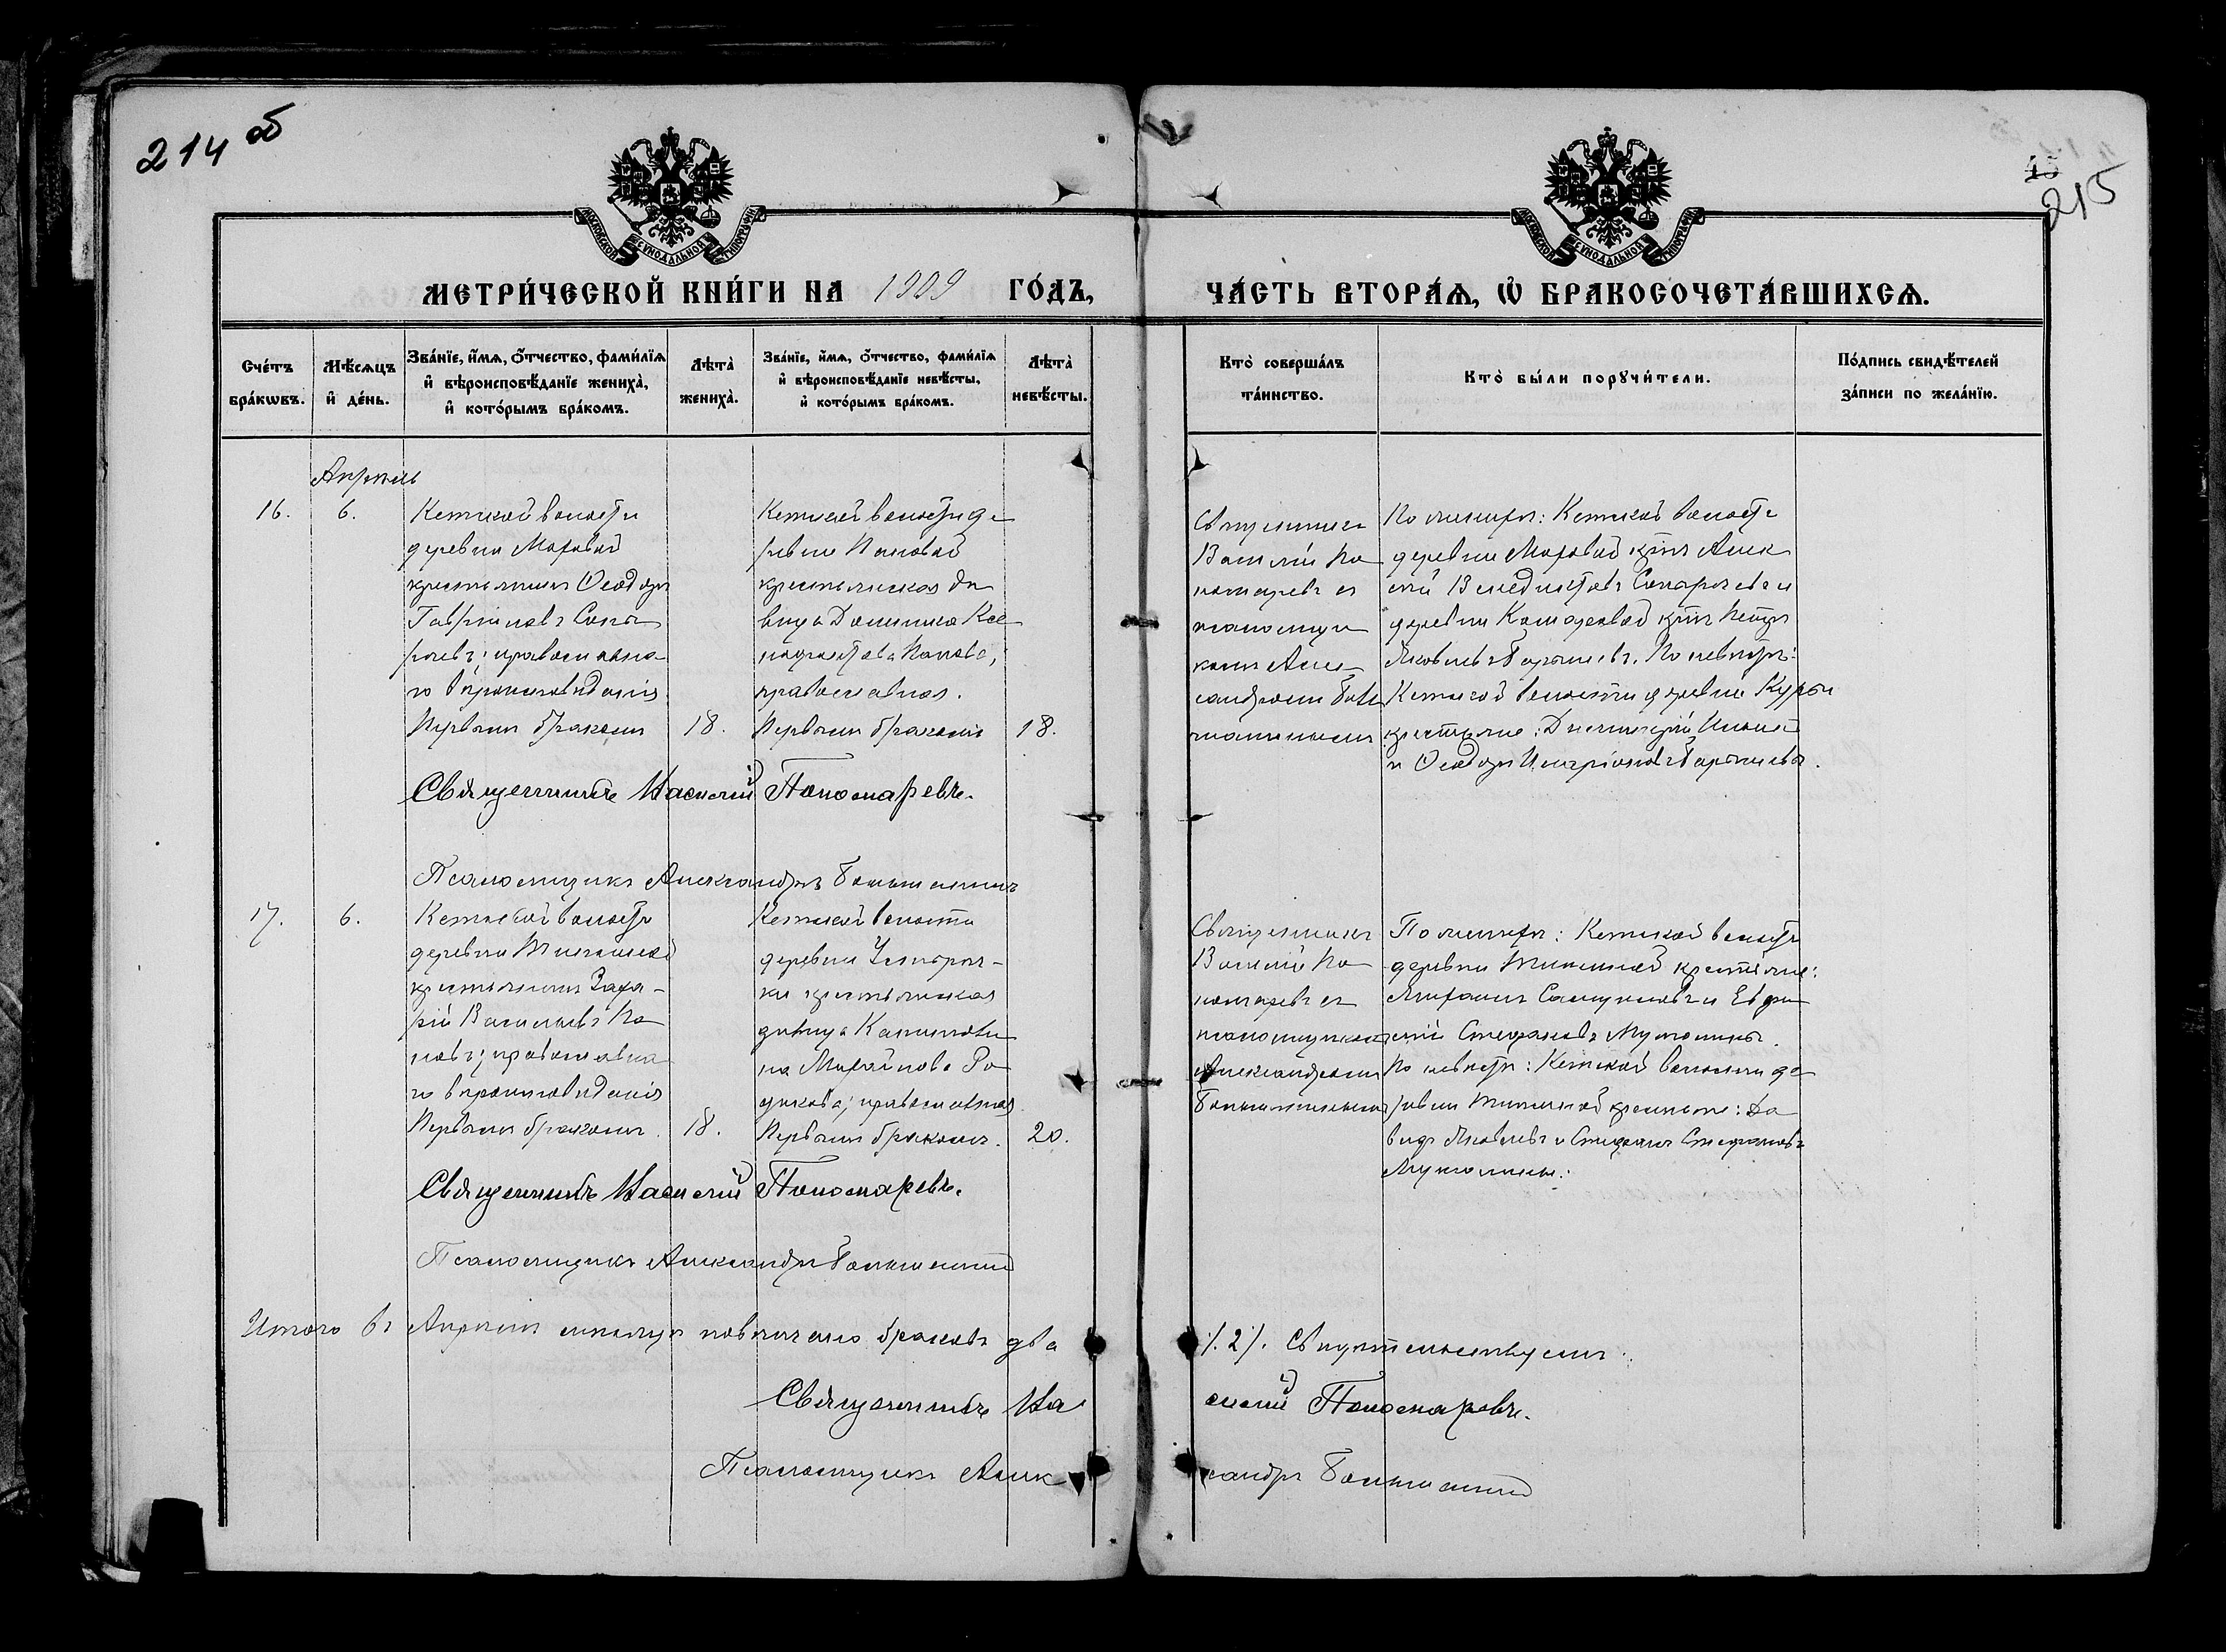 214 об
215
МОСКОВСКОЙ СѴНОДАЛЬНОЙ ТИПОГРАФІИ
МОСКОВСКОЙ СѴНОДАЛЬНОЙ ТИПОГРАФІИ
МЕТРИ́ЧЕСКОЙ КНИ́ГИ НА 1909 ГО́ДЪ,
ЧА́СТЬ ВТОРА́Ѧ, Ѡ БРАКОСОЧЕТА́ВШИХСѦ.
Сче́тъ бра́кѡвъ.
Мѣ́сѧцъ и҆ де́нь.
Зва́нїе, и҆́мѧ, ѻ҆́тчество, фами́лїѧ
и҆ вѣроисповѣ́данїе жениха̀,
и҆ кото́рымъ бра́комъ.
Лѣта̀ жениха̀.
Зва́нїе, и҆́мѧ, ѻ҆́тчество, фами́лїѧ
и҆ вѣроисповѣ́данїе невѣ́сты,
и҆ кото́рымъ бра́комъ.
Лѣта̀ невѣ́сты.
Кто̀ соверша́лъ та́инство.
Кто̀ бы́ли порꙋчи́тели.
По́дпись свидѣ́телей
за́писи по жела́нїю.
Апрѣль
16.
6.
Кетской волости
деревни Моховой
крестьянинъ Ѳеодоръ
Гавріиловъ
православна-
го вѣроисповѣданія
Первымъ бракомъ
18.
Кетской волости де-
ревни Пановой
крестьянская дѣ-
вица Домника
Панова,
православная.
Первымъ бракомъ
18.
Священникъ
Василій По
номаревъ съ
псаломщи
комъ Алек-
сандромъ
По женихѣ: Кетской волости
деревни Моховой кр‑нъ Алек
сѣй Венедиктовъ и
деревни кр‑нъ Петръ
Яковлевъ По невѣстѣ:
Кетской волости деревни
крестьяне: Димитрій
и Ѳеодоръ Иларіоновъ
Священникъ Василій Пономаревъ.
Псаломщикъ Александръ
17.
6.
Кетской волости
деревни
крестьянинъ Заха-
рій Васильевъ По
повъ; православна-
го вѣроисповѣданія
Первымъ бракомъ.
18.
Кетской волости
деревни
ки крестьянская
дѣвица Капитоли-
на Михайлова Ро
дикова; православная
Первымъ бракомъ.
20.
Священникъ
Василій По
номаревъ съ
псаломщикомъ
Александромъ
По женихѣ: Кетской волости
деревни крестьяне:
Михаилъ Самуиловъ и Евфи
мій Степановъ Мутолины.
По невѣстѣ: Кетской волости де
ревни крестьяне: Да
видъ Яковлевъ и Стефанъ Стефановъ
Мутолины:
Священникъ Василій Пономаревъ.
Псаломщикъ Александръ
Итого въ Апрѣлѣ мѣсяцѣ повѣнчано браковъ два
/.2/. Свидѣтельствуемъ:
Священникъ Ва
силій Пономаревъ.
Псаломщикъ Алек
сандръ